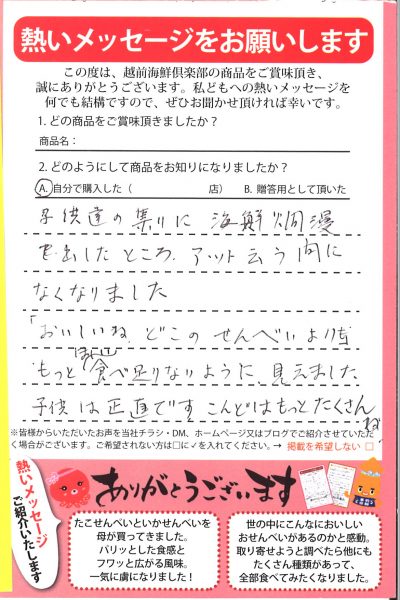 熱いメッセージをお願いします
この度は、越前海鮮倶楽部の商品をご賞味頂き、
誠にありがとうございます。私どもへの熱いメッセージを
何でも結構ですので、ぜひお聞かせ頂ければ幸いです。
1. どの商品をご賞味頂きましたか？
商品名：
2. どのようにして商品をお知りになりましたか？
A. 自分で購入した（　　　　　　店）　B. 贈答用として頂いた
子供達の集りに 海鮮爛漫
を出したところ、アット云う間に
なくなりました
「おいしいね、どこのせんべいよりも
もっと 食べ足りないように、見えました
子供は正直です こんどはもっとたくさんね
※皆様からいただいたお声を当社チラシ・DM、ホームページ又はブログでご紹介させていただ
く場合がございます。ご希望されない方は□に✓を入れてください。→ 掲載を希望しない □
熱いメッセージ
ご紹介いたします
ありがとうございます
たこせんべいといかせんべいを
母が買ってきました。
パリッとした食感と
フワッと広がる風味。
一気に虜になりました！
世の中にこんなにおいしい
おせんべいがあるのかと感動。
取り寄せようと調べたら他にも
たくさん種類があって、
全部食べてみたくなりました。